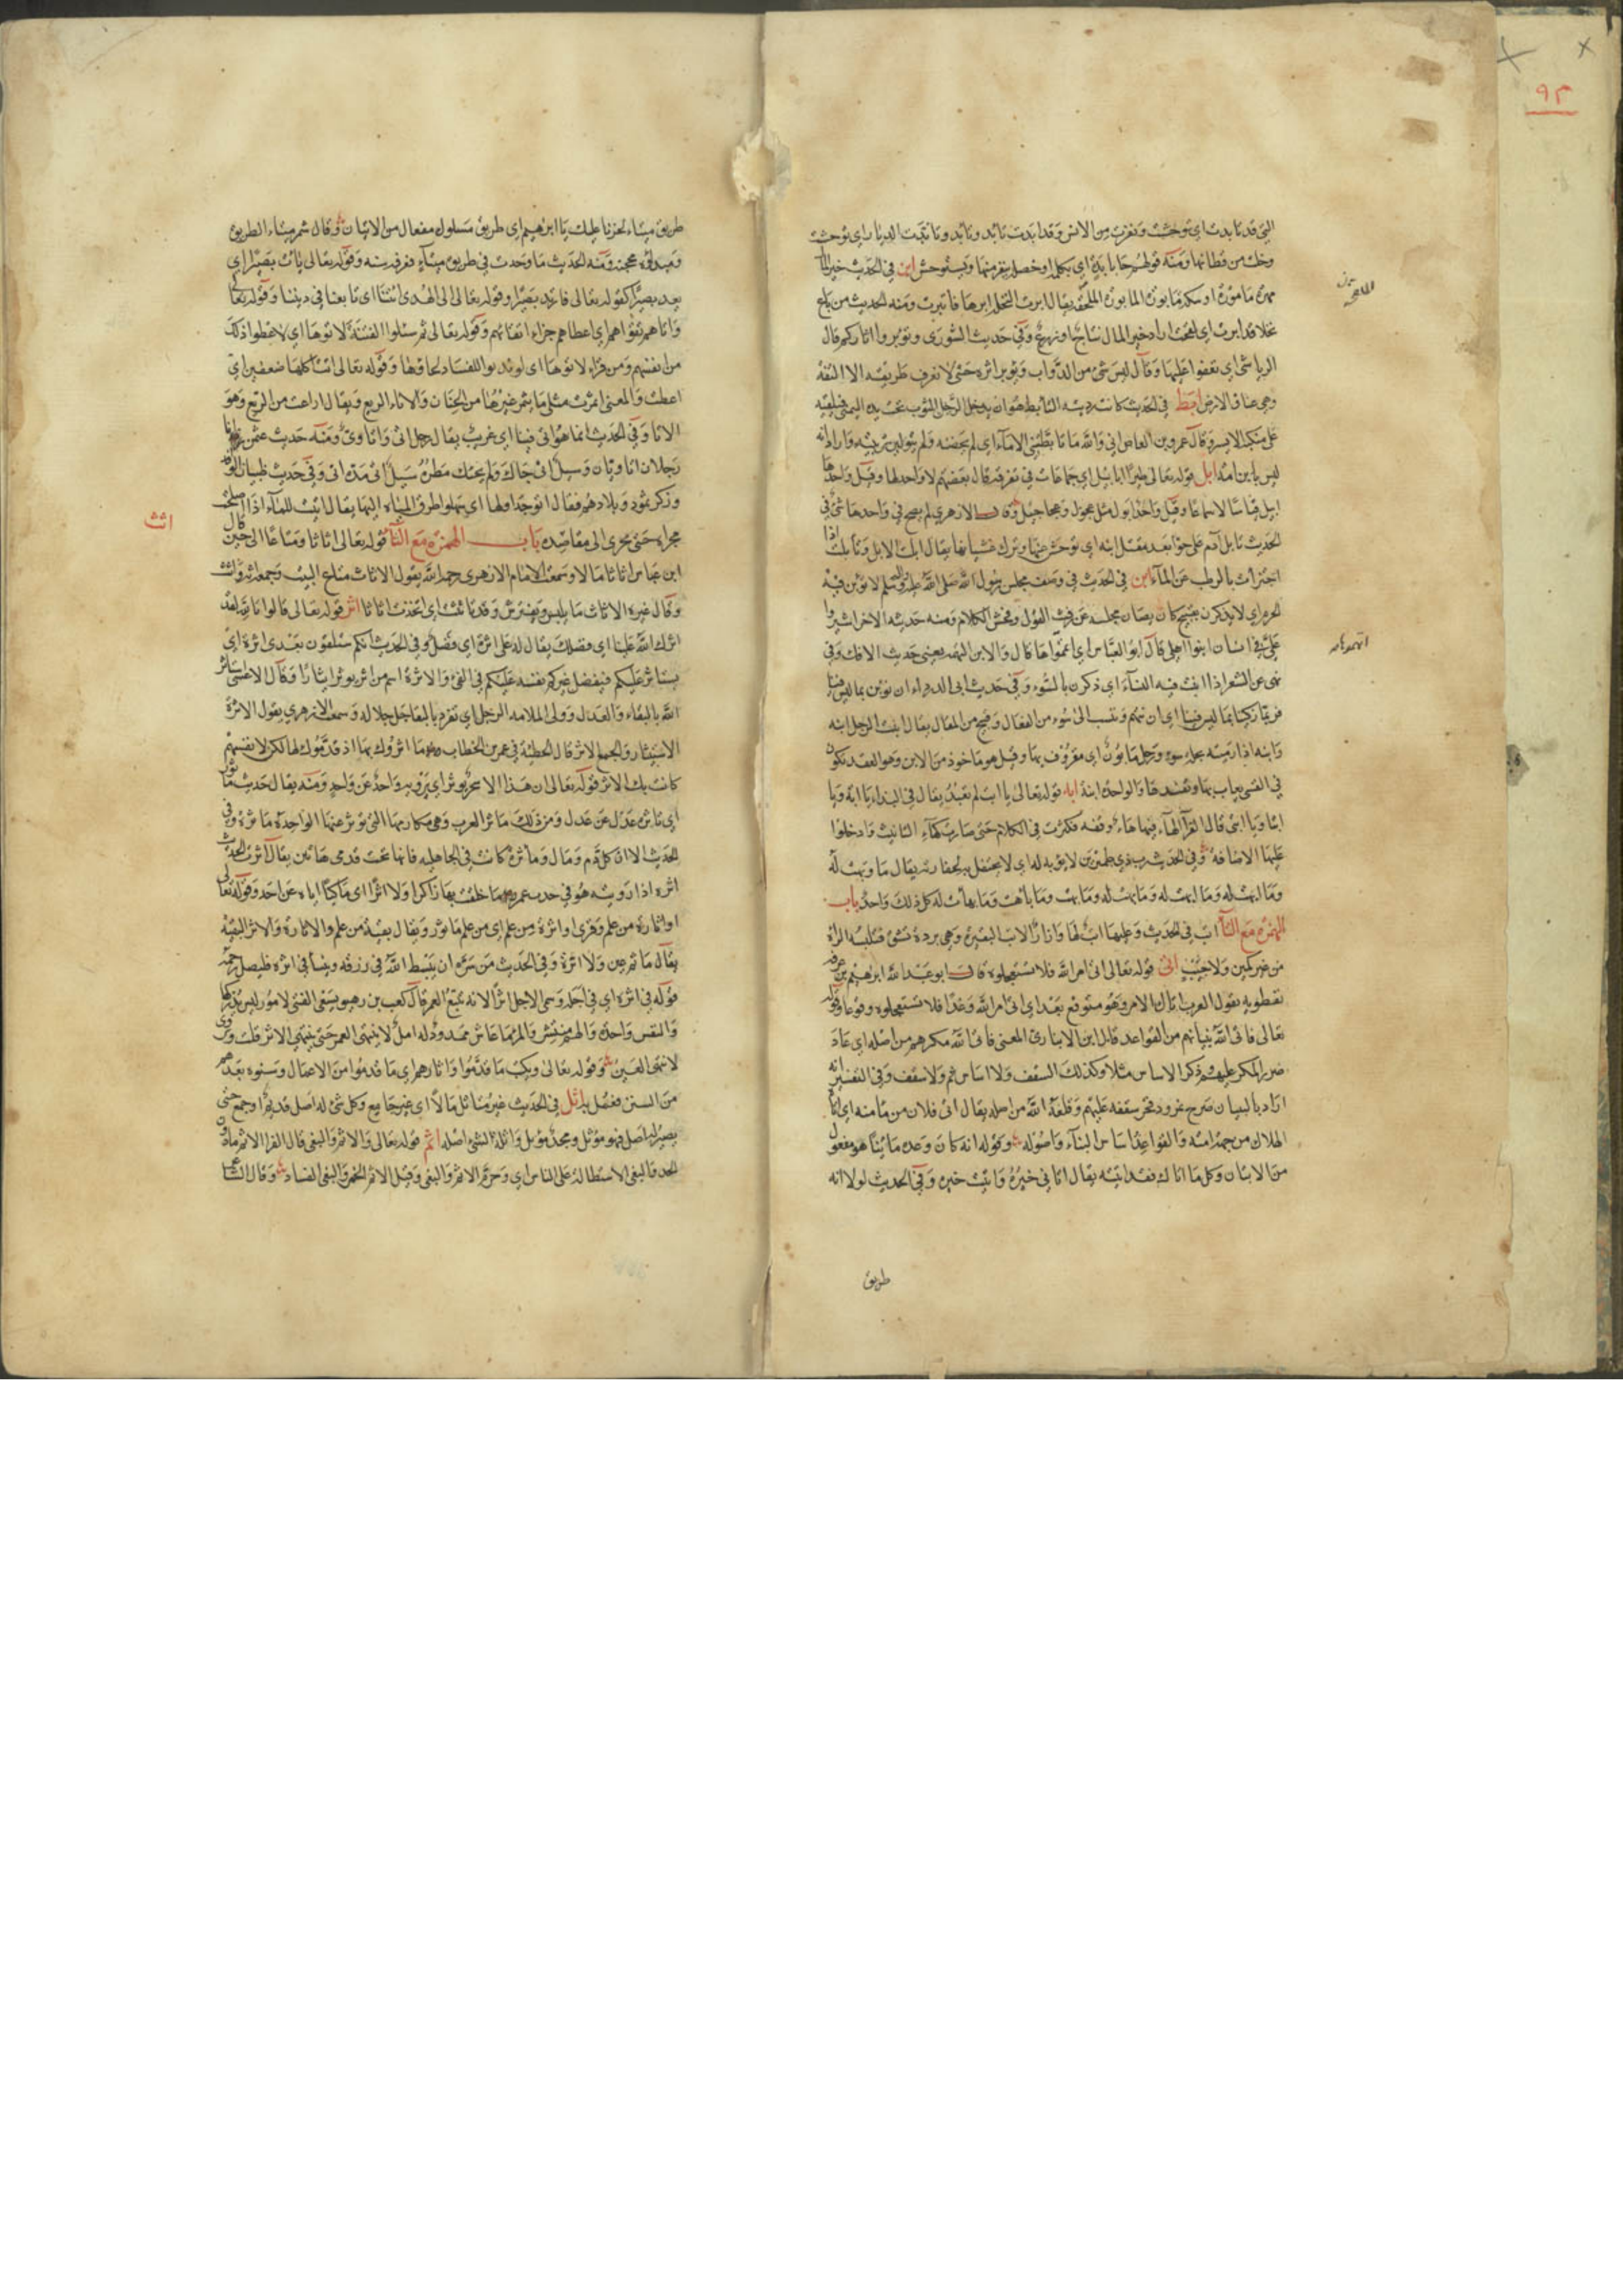 ٩٣
التي قد تابدت اي توحشت ونفرت من الانس وقد ابدت تابد وتابد وتابدت الديار اي توحشت
وخلت من قطانها ومنه قولهم جا بابدة اي بكلمة او خصلة ينفر منها ويستوحش ابر في الحديث خير المال
مهرة مامورة او سكة مابورة المابورة الملقحة يقال ابرت النخل ابرها فتابرت ومنه الحديث من باع
نخلا قد ابرت اي لقحت اراد خير المال نتاج او زرع وفي حديث الشورى وتوبروا اثاركم قال
الرياشي اي تعفوا عليها وقال ليس شي من الدواب يوبر اثره حتى لا يعرف طريقه الا التفة
وهي عناق الارض ابط في الحديث كانت رديته التابط هو ان يدخل الرجل الثوب تحت يده اليمنى فيلقيه
على منكبه الايسر وقال عمرو بن العاص اني والله ما تابطتني الاماء اي لم يحضنه ولم يتولين تربيته واراد انه
ليس بابن امة ابل قوله تعالى طيرا ابابيل اي جماعات في تفرقة قال بعضهم لا واحد لها وقيل واحدها
ابيل قياسا لا سماعا وقيل واحدها ابول مثل عجول وعجاجيل وقال الازهري لم يصح في واحدها شي في
الحديث تابل آدم على حوا بعد مقتل ابنه اي توحش عنها وترك غشيانها يقال ابلت الابل وتابلت اذا
اجتزات بالرطب عن الماء ابن في الحديث في وصف مجلس رسول الله صلى الله عليه وسلم لا توبن فيه
الحرم اي لا يذكرن بقبيح كان يصان مجلسه عن رفث القول وفحش الكلام ومنه حديثه الاخر اشيروا
علي في اناس ابنوا اهلي قال ابو العباس اي اتهموها قال والابن التهمة يعني حديث الافك وفي
نهى عن الشعر اذا ابنت فيه النساء اي ذكرن بالسوء وفي حديث ابي الدرداء ان نوبن بما ليس فينا
فربما زكينا بما ليس فينا اي ان نتهم وننسب الى سوء من الفعال وقبيح من المقال يقال ابنت الرجل ابنه
وابنه اذا رميته بخلة سوء ورجل مابون اي معروف بها وقيل هو ماخوذ من الابن وهو العقد تكون
في القسي يعاب بها وتفسدها والواحدة ابنة ابه قوله تعالى يا ابت لم تعبد يقال في النداء يا ابة ويا
ابتا ويا ابتي قال الفرا الهاء فيها هاء وقفة فكثرت في الكلام حتى صارت كهاء التانيث وادخلوا
عليها الاضافة وفي الحديث رب ذي طمرين لا يوبه له اي لا يحتفل به لحقارته يقال ما وبهت له
وما ابهت له وما ابهت له وما بهت له وما بهت وما باهت وما بهات له كل ذلك واحد باب
الهمزة مع التا اب في الحديث وعليها اتب لها وازار الاتب البقيرة وهي بردة تشق فتلبسه المراة
من غير كمين ولا جيب اتى قوله تعالى اتى امر الله فلا تستعجلوه قال ابو عبد الله ابرهيم بن عرفة
نفطويه يقول العرب اتاك الامر وهو متوقع بعد اي اتى امر الله وعدا فلا تستعجلوه وقوعا وقوله
تعالى فاتى الله بنيانهم من القواعد قال ابن الانباري المعنى فاتى الله مكرهم من اصله اي عاد
ضرر المكر عليهم وذكر الاساس مثلا وكذلك السقف ولا اساس ثم ولا سقف وفي التفسير انه
اراد بالبنيان صرح نمرود فخر سقفه عليهم وقلعه الله من اصله يقال اتى فلان من مامنه اي اتاه
الهلاك من جهة امنه والقواعد اساس البناء واصوله وقوله انه كان وعده ماتيا هو مفعول
من الاتيان وكل ما اتاك فقد اتيته يقال اتاني خيره واتيت خيره وفي الحديث لولا انه
طريق
طريق ميتاء لحزنا عليك يا ابرهيم اي طريق مسلوك مفعال من الاتيان وقال شمر ميتاء الطريق
وميداؤه محجته ومنه الحديث ما وجدت في طريق ميتاء فعرفه سنة وقوله تعالى يات بصيرا اي
يعد بصيرا كقوله تعالى فارتد بصيرا وقوله تعالى الى الهدى ائتنا اي تابعنا في ديننا وقوله تعالى
واتاهم تقواهم اي اعطاهم جزاء اتقائهم وقوله تعالى ثم سئلوا الفتنة لاتوها اي لاعطوا ذلك
من انفسهم ومن قراء لاتوها اي لو ندبوا للفساد لجاؤها وقوله تعالى اتت اكلها ضعفين اي
اعطت والمعنى اثمرت مثلي ما يثمر غيرها من الجنان والاتاء الريع ويقال اراعت من الريع وهو
الاتا وفي الحديث انما هو اتي فينا اي غريب يقال رجل اتي واتاوي ومنه حديث عثمن انا
رجلان اتاويان وسيل اتي جاءك ولم يجئك مطره وسيل اتي مده اتي وفي حديث ظبيان الوفد
وذكر ثمود وبلادهم فقال اتوا جداولها اي سهلوا طرق المياه اليها يقال اتيت للماء اذا اصلحت
مجراه حتى يجري الى مقاصده باب الهمزة مع الثاء قوله تعالى اثاثا ومتاعا الى حين قال
اثث
ابن عباس اثاثا مالا وسمعت الامام الازهري رحمه الله يقول الاثاث متاع البيت وجمعه اثة واثث
وقال غيره الاثاث ما يلبس ويفترش وقد تاثثت اي اتخذت اثاثا اثر قوله تعالى قالوا تالله لقد
اثرك الله علينا اي فضلك يقال له علي اثرة اي فضل وفي الحديث انكم ستلقون بعدي اثرة اي
يستاثر عليكم فيفضل غيركم نفسه عليكم في الفئ والاثرة اسم من اثر يوثر ايثارا وقال الاعشى استاثر
الله بالبقاء وبالعدل وولى الملامة الرجل اي تفرد بالبقا جل جلاله وسمعت الازهري يقول الاثرة
الاستيثار والجمع الاثر قال الحطيئة في عمر بن الخطاب ما اثروك بها اذ قدموك لها لكن لانفسهم
كانت بك الاثر قوله تعالى ان هذا الا سحر يوثر اي يرويه واحد عن واحد ومنه يقال حديث ماثور
اي ياثره عدل عن عدل ومن ذلك ماثر العرب وهي مكارمها التي توثر عنها الواحدة ماثرة وفي
الحديث الا ان كل دم ومال وماثرة كانت في الجاهلية فانها تحت قدمي هاتين يقال اثرت الحديث
اثره اذا رويته هو في حديث عمر ما حلفت بها ذاكرا ولا اثرا اي حاكيا اياه عن احد وقوله تعالى
او اثارة من علم وقرى او اثرة من علم اي من علم ماثور ويقال بقية من علم والاثارة والاثر البقية
يقال ما ثم عين ولا اثرة وفي الحديث من سره ان يبسط الله في رزقه وينسا في اثره فليصل رحمه
قوله في اثره اي في اجله وسمي الاجل اثرا لانه يتبع العمر قال كعب بن زهير يسعى الفتى لامور ليس يدركها
والنفس واحدة والهم منتشر والمرء ما عاش ممدود له امل لا ينتهي العمر حتى ينتهي الاثر قلت وروى
لا تنتهي العين وقوله تعالى ونكتب ما قدموا واثارهم اي ما قدموا من الاعمال وسنوه بعدهم
من السنن فعمل به اثل في الحديث غير متاثل مالا اي غير جامع وكل شي له اصل قديم او جمع حتى
يصير له اصل فهو موثل ومجد موثل واثلة الشي اصله اثم قوله تعالى والاثم والبغي قال الفرا الاثم مادون
الحد والبغي الاستطالة على الناس اي وحرم الاثم والبغي وقيل الاثم الخمر والبغي الفساد وقال الشاعر